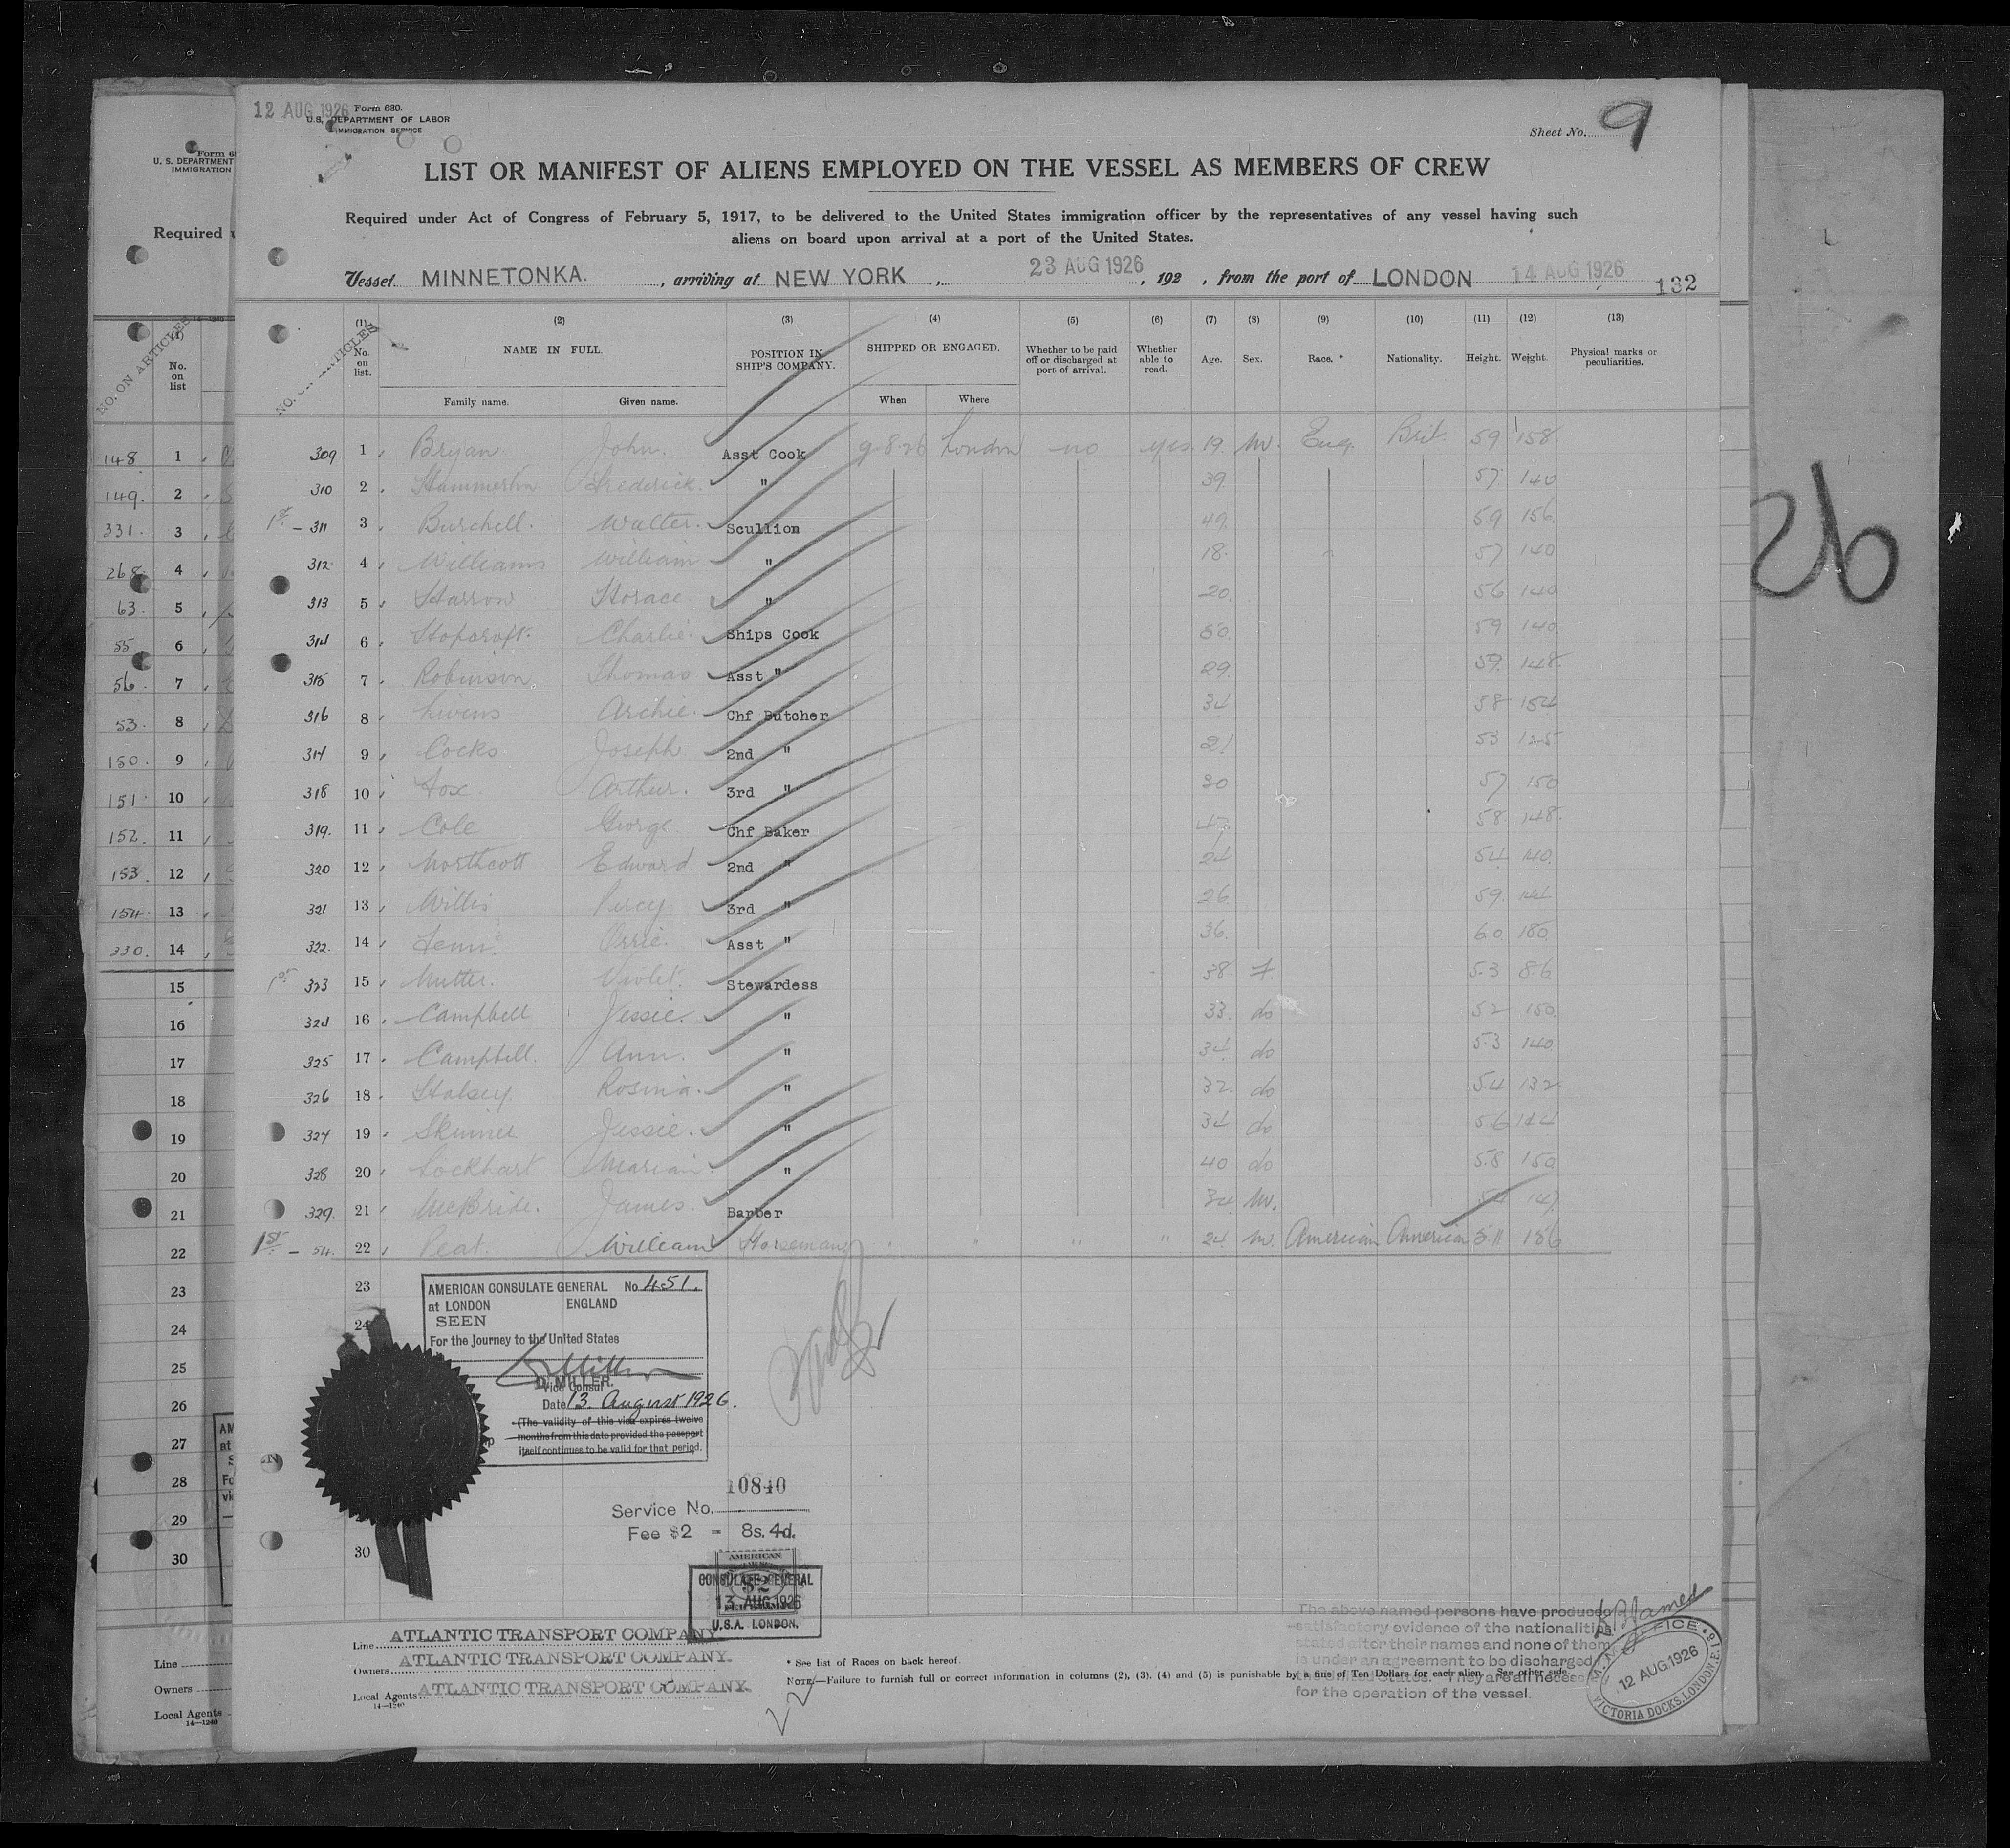 12 AUG 1926
Form 680.
U.S. DEPARTMENT OF LABOR
IMMIGRATION SERVICE
Sheet No. 9
LIST OR MANIFEST OF ALIENS EMPLOYED ON THE VESSEL AS MEMBERS OF CREW
Required under Act of Congress of February 5, 1917, to be delivered to the United States immigration officer by the representatives of any vessel having such
aliens on board upon arrival at a port of the United States.
Vessel MINNETONKA. , arriving at NEW YORK , 23 AUG 1926 , 192 , from the port of LONDON 14 AUG 1926 132
(1) (2) (3) (4) (5) (6) (7) (8) (9) (10) (11) (12) (13)
No. on list. NAME IN FULL. POSITION IN SHIP'S COMPANY. SHIPPED OR ENGAGED. Whether to be paid off or discharged at port of arrival. Whether able to read. Age. Sex. Race. * Nationality. Height. Weight. Physical marks or peculiarities.
Family name. Given name. When Where
309 1 Bryan John. Asst Cook 9-8-26 London no yes 19. M. Eng. Brit. 59 158
310 2 Frederick. " 39. 57 140
1st - 311 3 Burchell. Walter. Scullion 49. 59 156
312 4 Williams William " 18. 57 140
313 5 Harrow Horace " 20. 56 140
314 6 Charlie. Ships Cook 59 140
315 7 Robinson. Thomas Asst " 29. 59. 148.
316 8 Archie. Chf Butcher 34 58 154
317 9 Cocks Joseph 2nd " 21 53 125
318 10 Fox. Arthur. 3rd " 30 57 150
319. 11 Cole George Chf Baker 47. 58. 148.
320 12 Northcott Edward 2nd " 24 54 140.
321 13 Willis Percy 3rd " 26. 59. 144
322. 14 Asst " 36. 60 180
1st 323 15 Violet. Stewardess 38. F. 5.3 86
324 16 Campbell Jessie. " 33. do 52 150.
325 17 Campbell. Ann. " 34 do 5.3 140
326 18 Halsey. Rosina. " 32. do 54 132
327 19 Skinner Jessie. " 34 do 56 144
328 20 Lockhart Marian. " 40 do 58 150
329. 21 McBride. James. Barber 34 M. 54 147
1st - 54. 22 Peat. William Horseman " " " " 24 M. American American 5.11 186
23
24
30
AMERICAN CONSULATE GENERAL No 451.
at LONDON ENGLAND
SEEN
For the Journey to the United States
D. MILLER.
Vice Consul
Date 13. August 1926.
(The validity of this visa expires twelve
months from this date provided the passport
itself continues to be valid for that period.
10840
Service No.
Fee $2 = 8s. 4d.
AMERICAN
CONSULATE GENERAL
13 AUG 1926
U.S.A. LONDON.
Line ATLANTIC TRANSPORT COMPANY
Owners ATLANTIC TRANSPORT COMPANY.
Local Agents ATLANTIC TRANSPORT COMPANY.
14—1240
* See list of Races on back hereof.
NOTE—Failure to furnish full or correct information in columns (2), (3), (4) and (5) is punishable by a fine of Ten Dollars for each alien. See other side.
The above named persons have produced
satisfactory evidence of the nationalities
stated after their names and none of them
is under an agreement to be discharged
They are all necess
for the operation of the vessel.
OFFICE
12 AUG 1926
VICTORIA DOCKS, LONDON, E.16
26
U. S. DEPARTMENT
IMMIGRATION
Required
NO. ON ARTICLES
No. on list
148 1
149. 2
331. 3
268 4
63. 5
55 6
56. 7
53. 8
150. 9
151 10
152. 11
153. 12
154. 13
330. 14
15
16
17
18
19
20
21
22
23
24
25
26
27
28
29
30
Line
Owners
Local Agents
14—1240